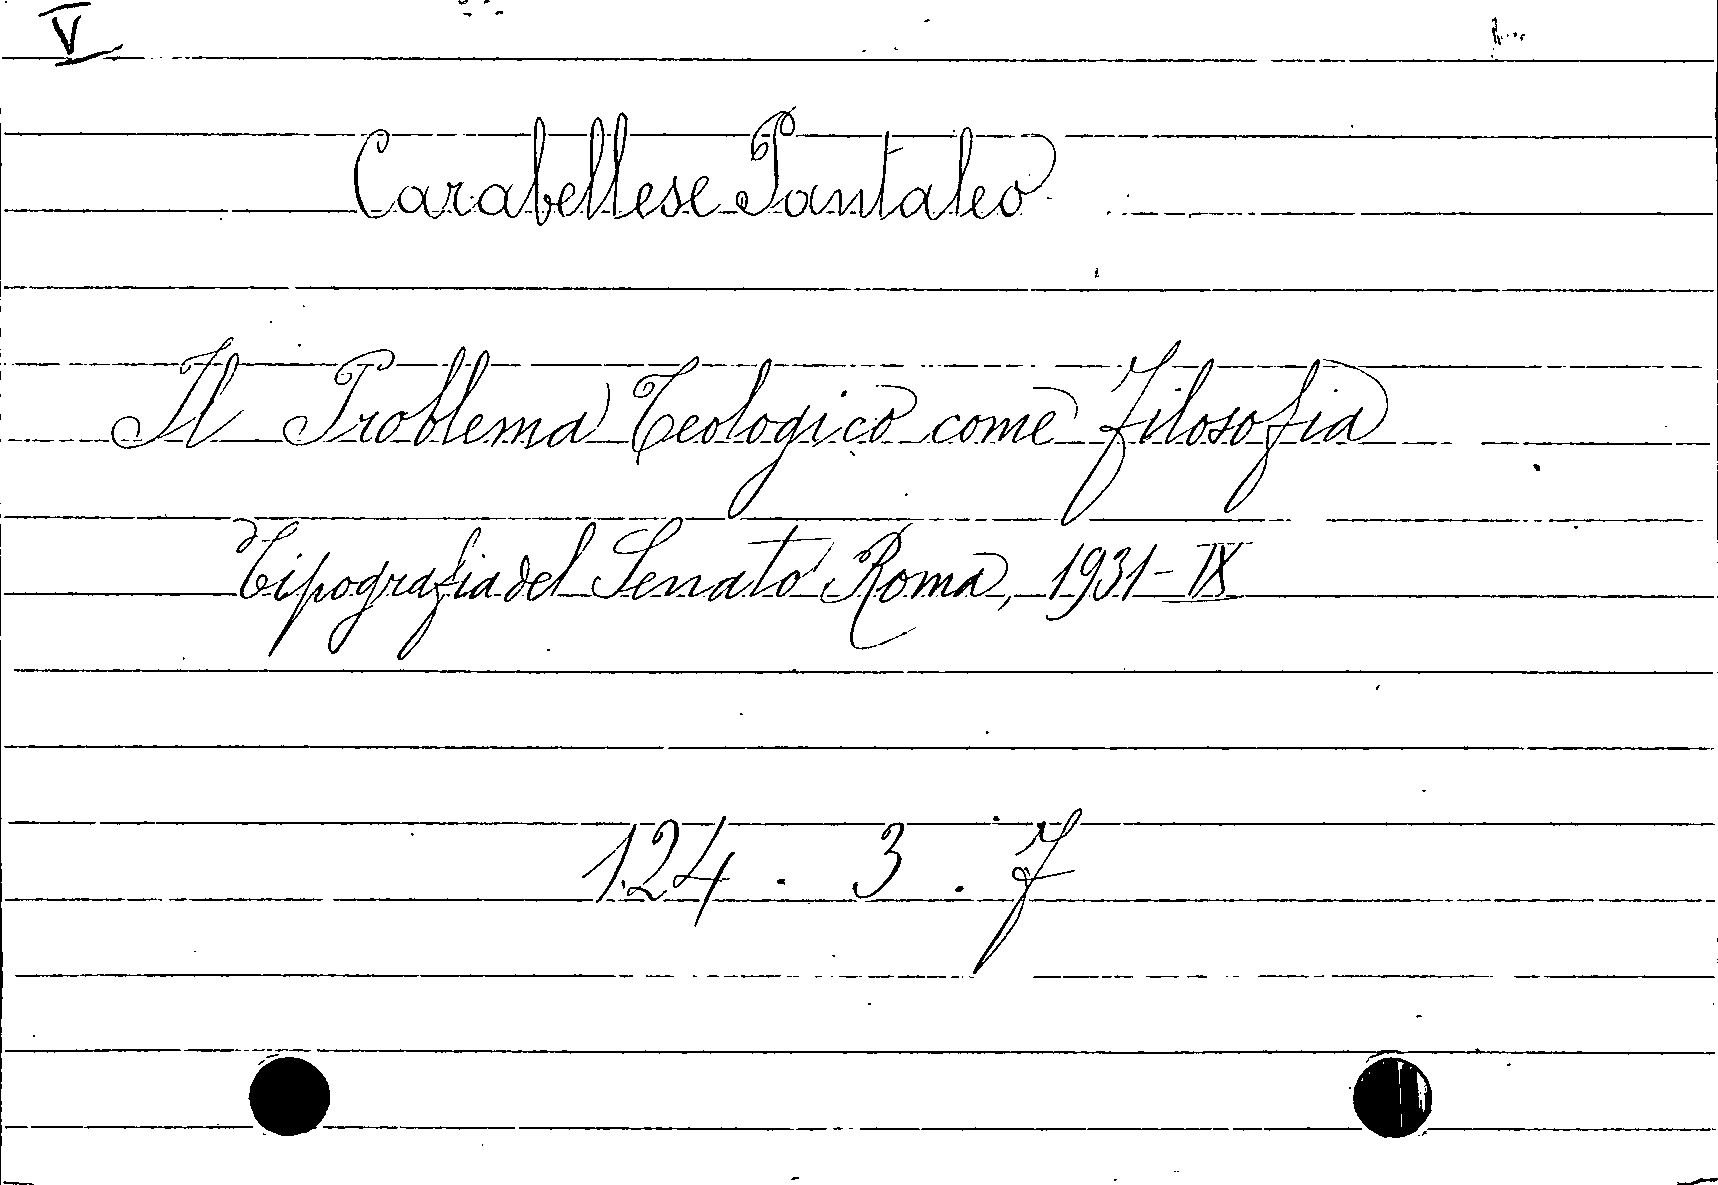 V
Carabellese Pantaleo
Il Problema Teologico come filosofia
Tipografia del Senato Roma, 1931-IX
124. 3. 7